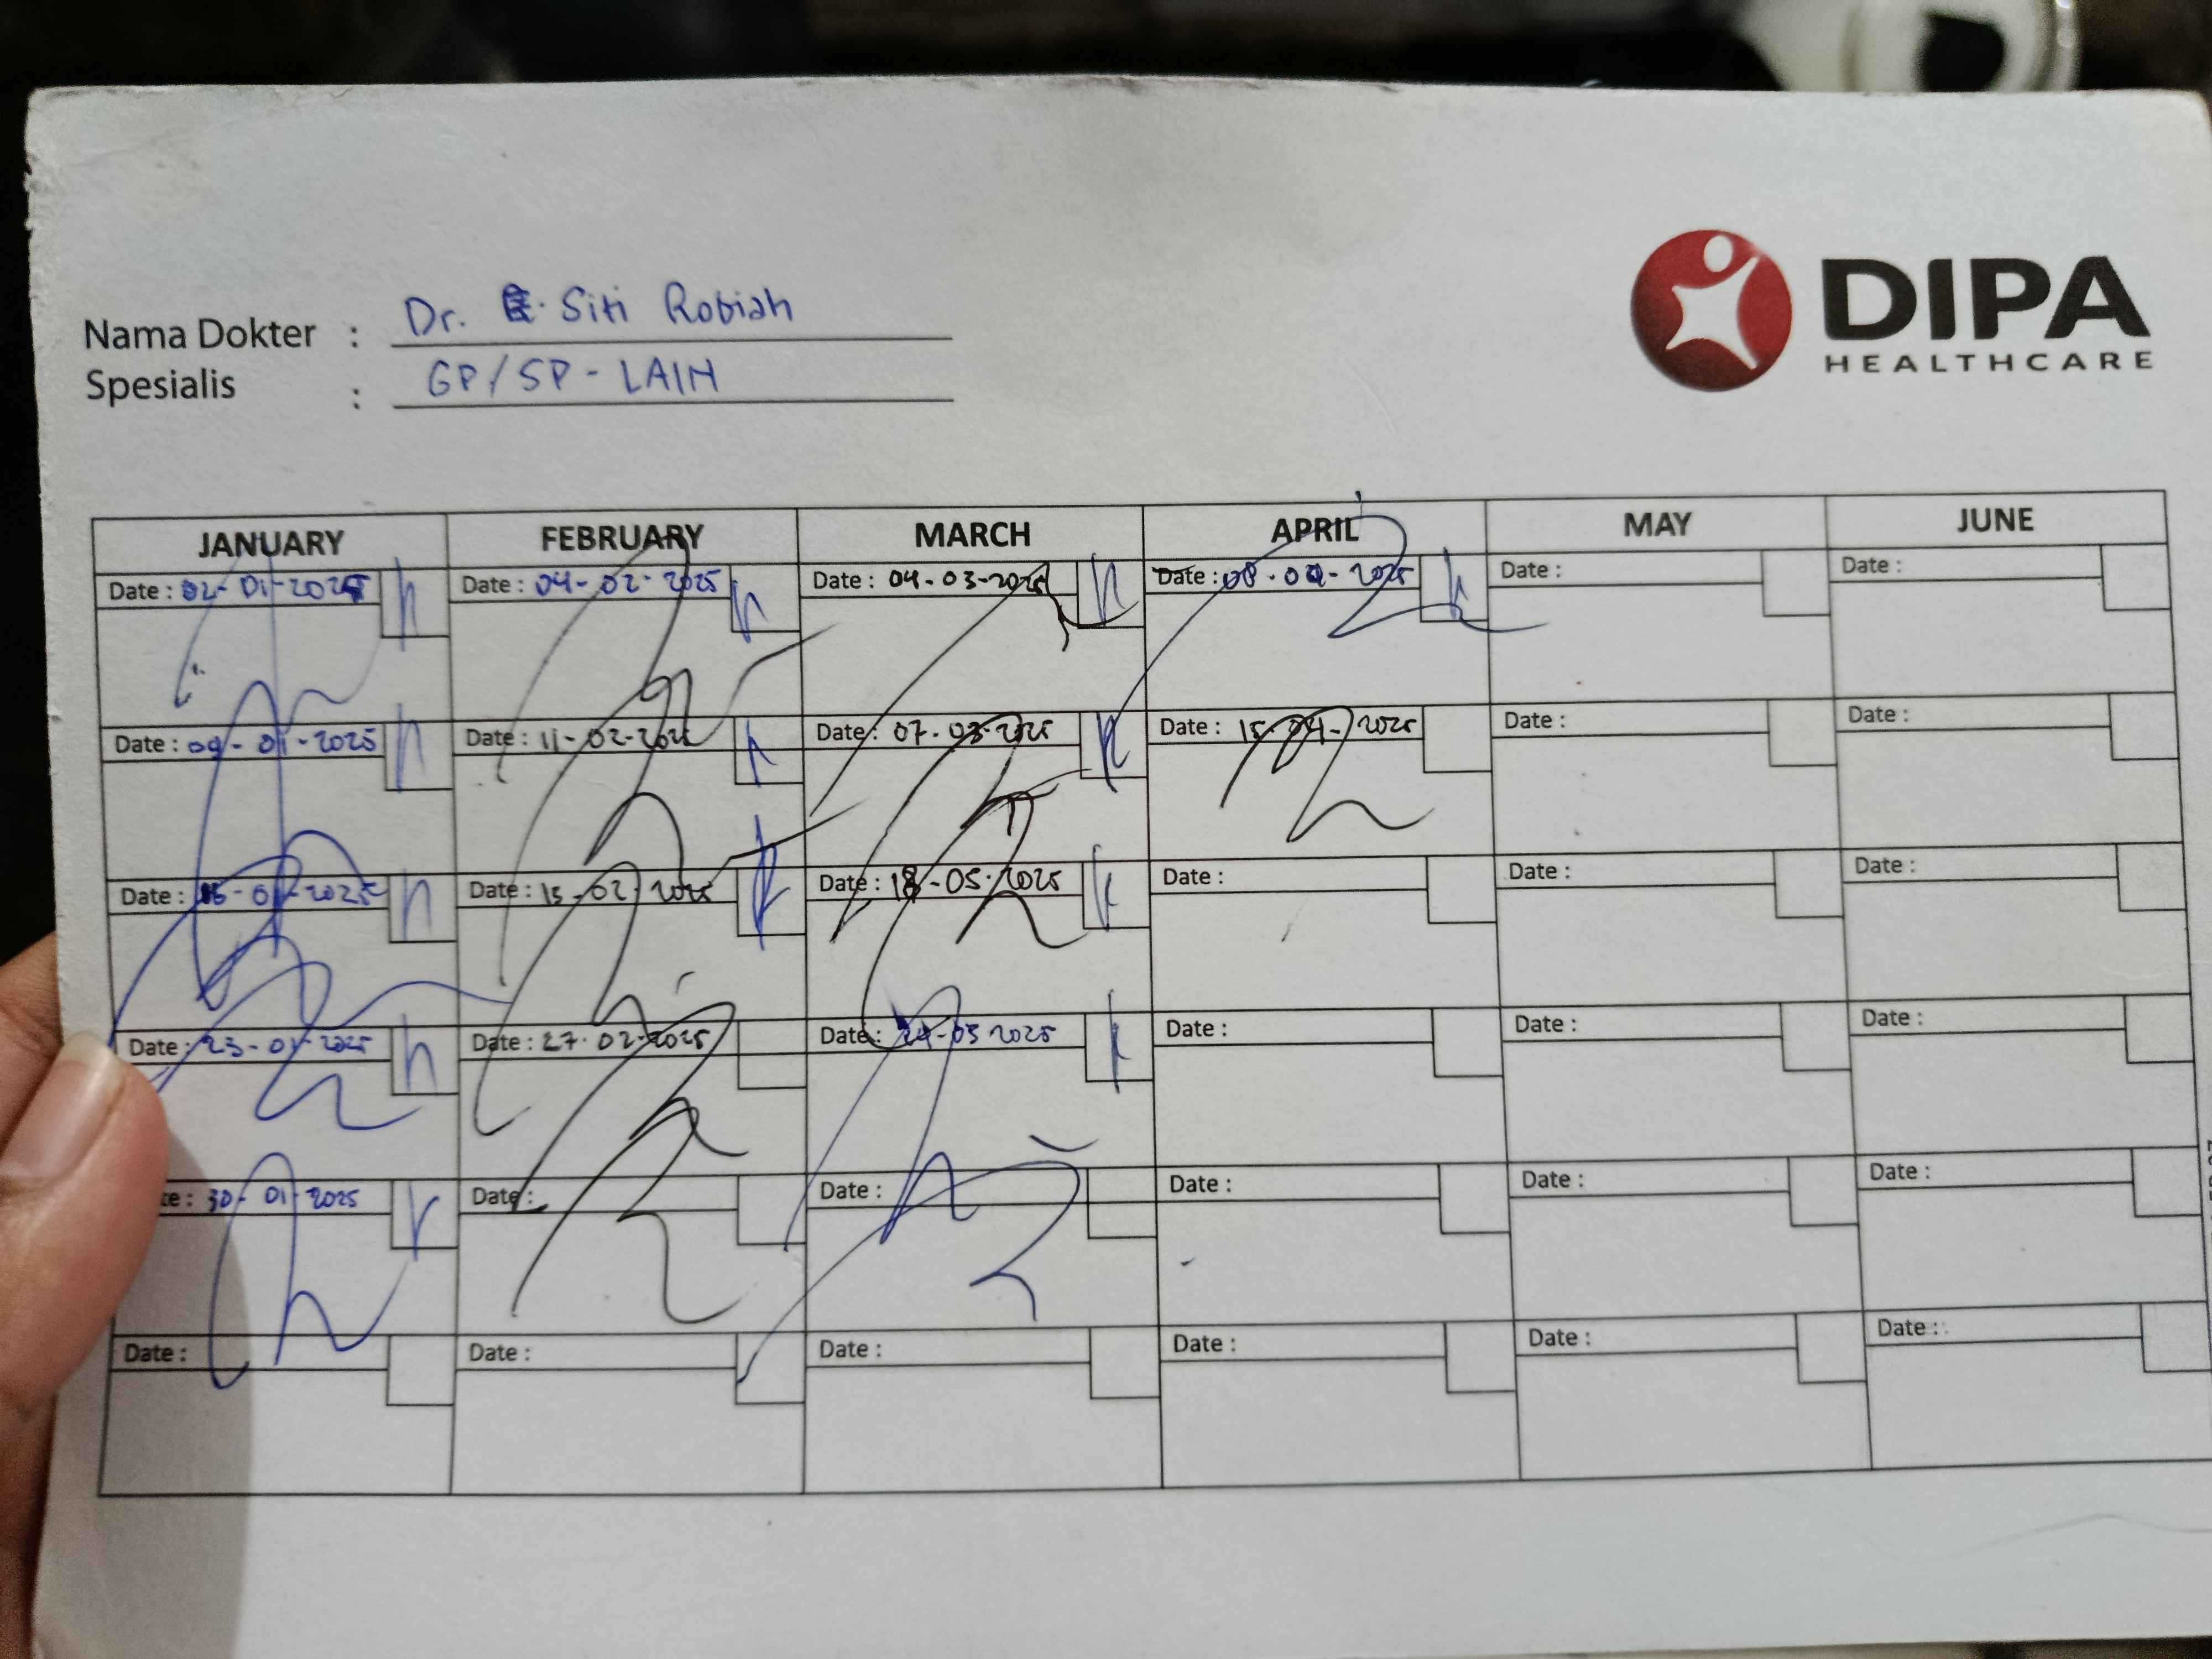 DIPA
HEALTHCARE
Nama Dokter : Dr. Siti Robiah
Spesialis : GP/SP-LAIN
JANUARY FEBRUARY MARCH APRIL MAY JUNE
Date : 02-01-2025 Date : 04-02-2025 Date : 04-03-2025 Date : 08-04-2025 Date : Date :
Date : 09-01-2025 Date : 11-02-2025 Date : 07-03-2025 Date : 15-04-2025 Date : Date :
Date : Date : 15-02-2025 Date : 18-03-2025 Date : Date : Date :
Date : 23-01-2025 Date : 27-02-2025 Date : 24-03 2025 Date : Date : Date :
te : 30-01-2025 Date : Date : Date : Date : Date :
Date : Date : Date : Date : Date : Date :